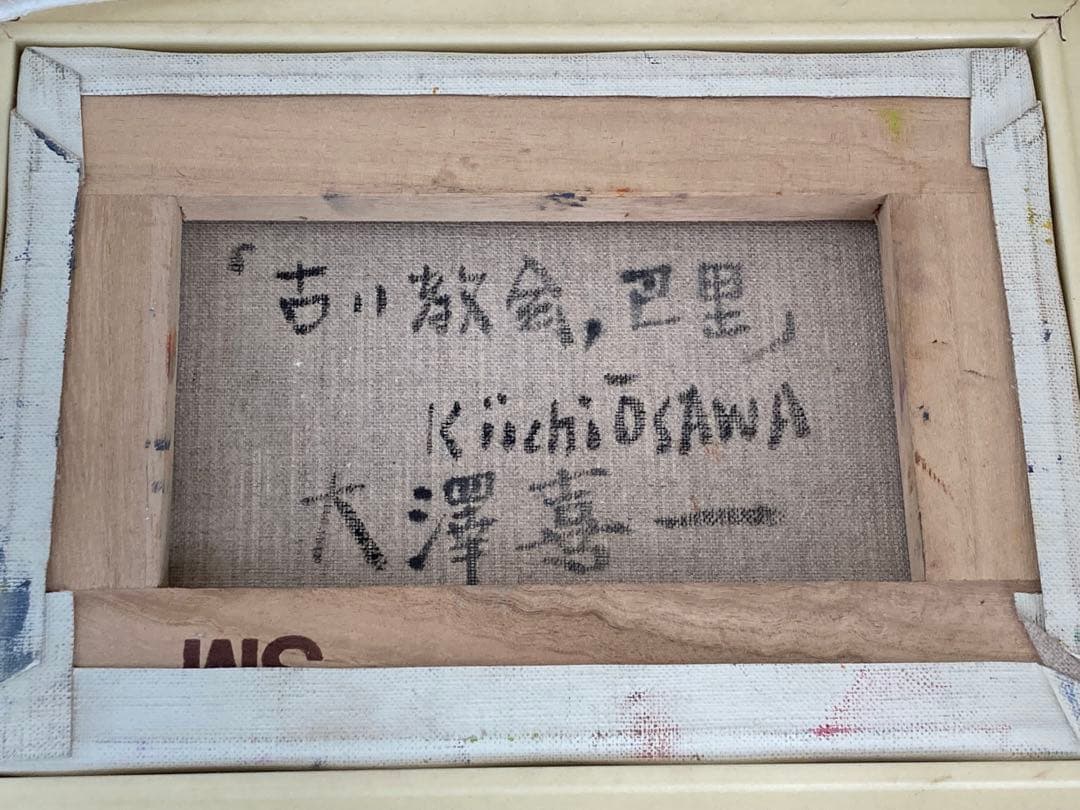 「古い教会, 巴里」
Kiichi ŌSAWA
大澤喜一
SM